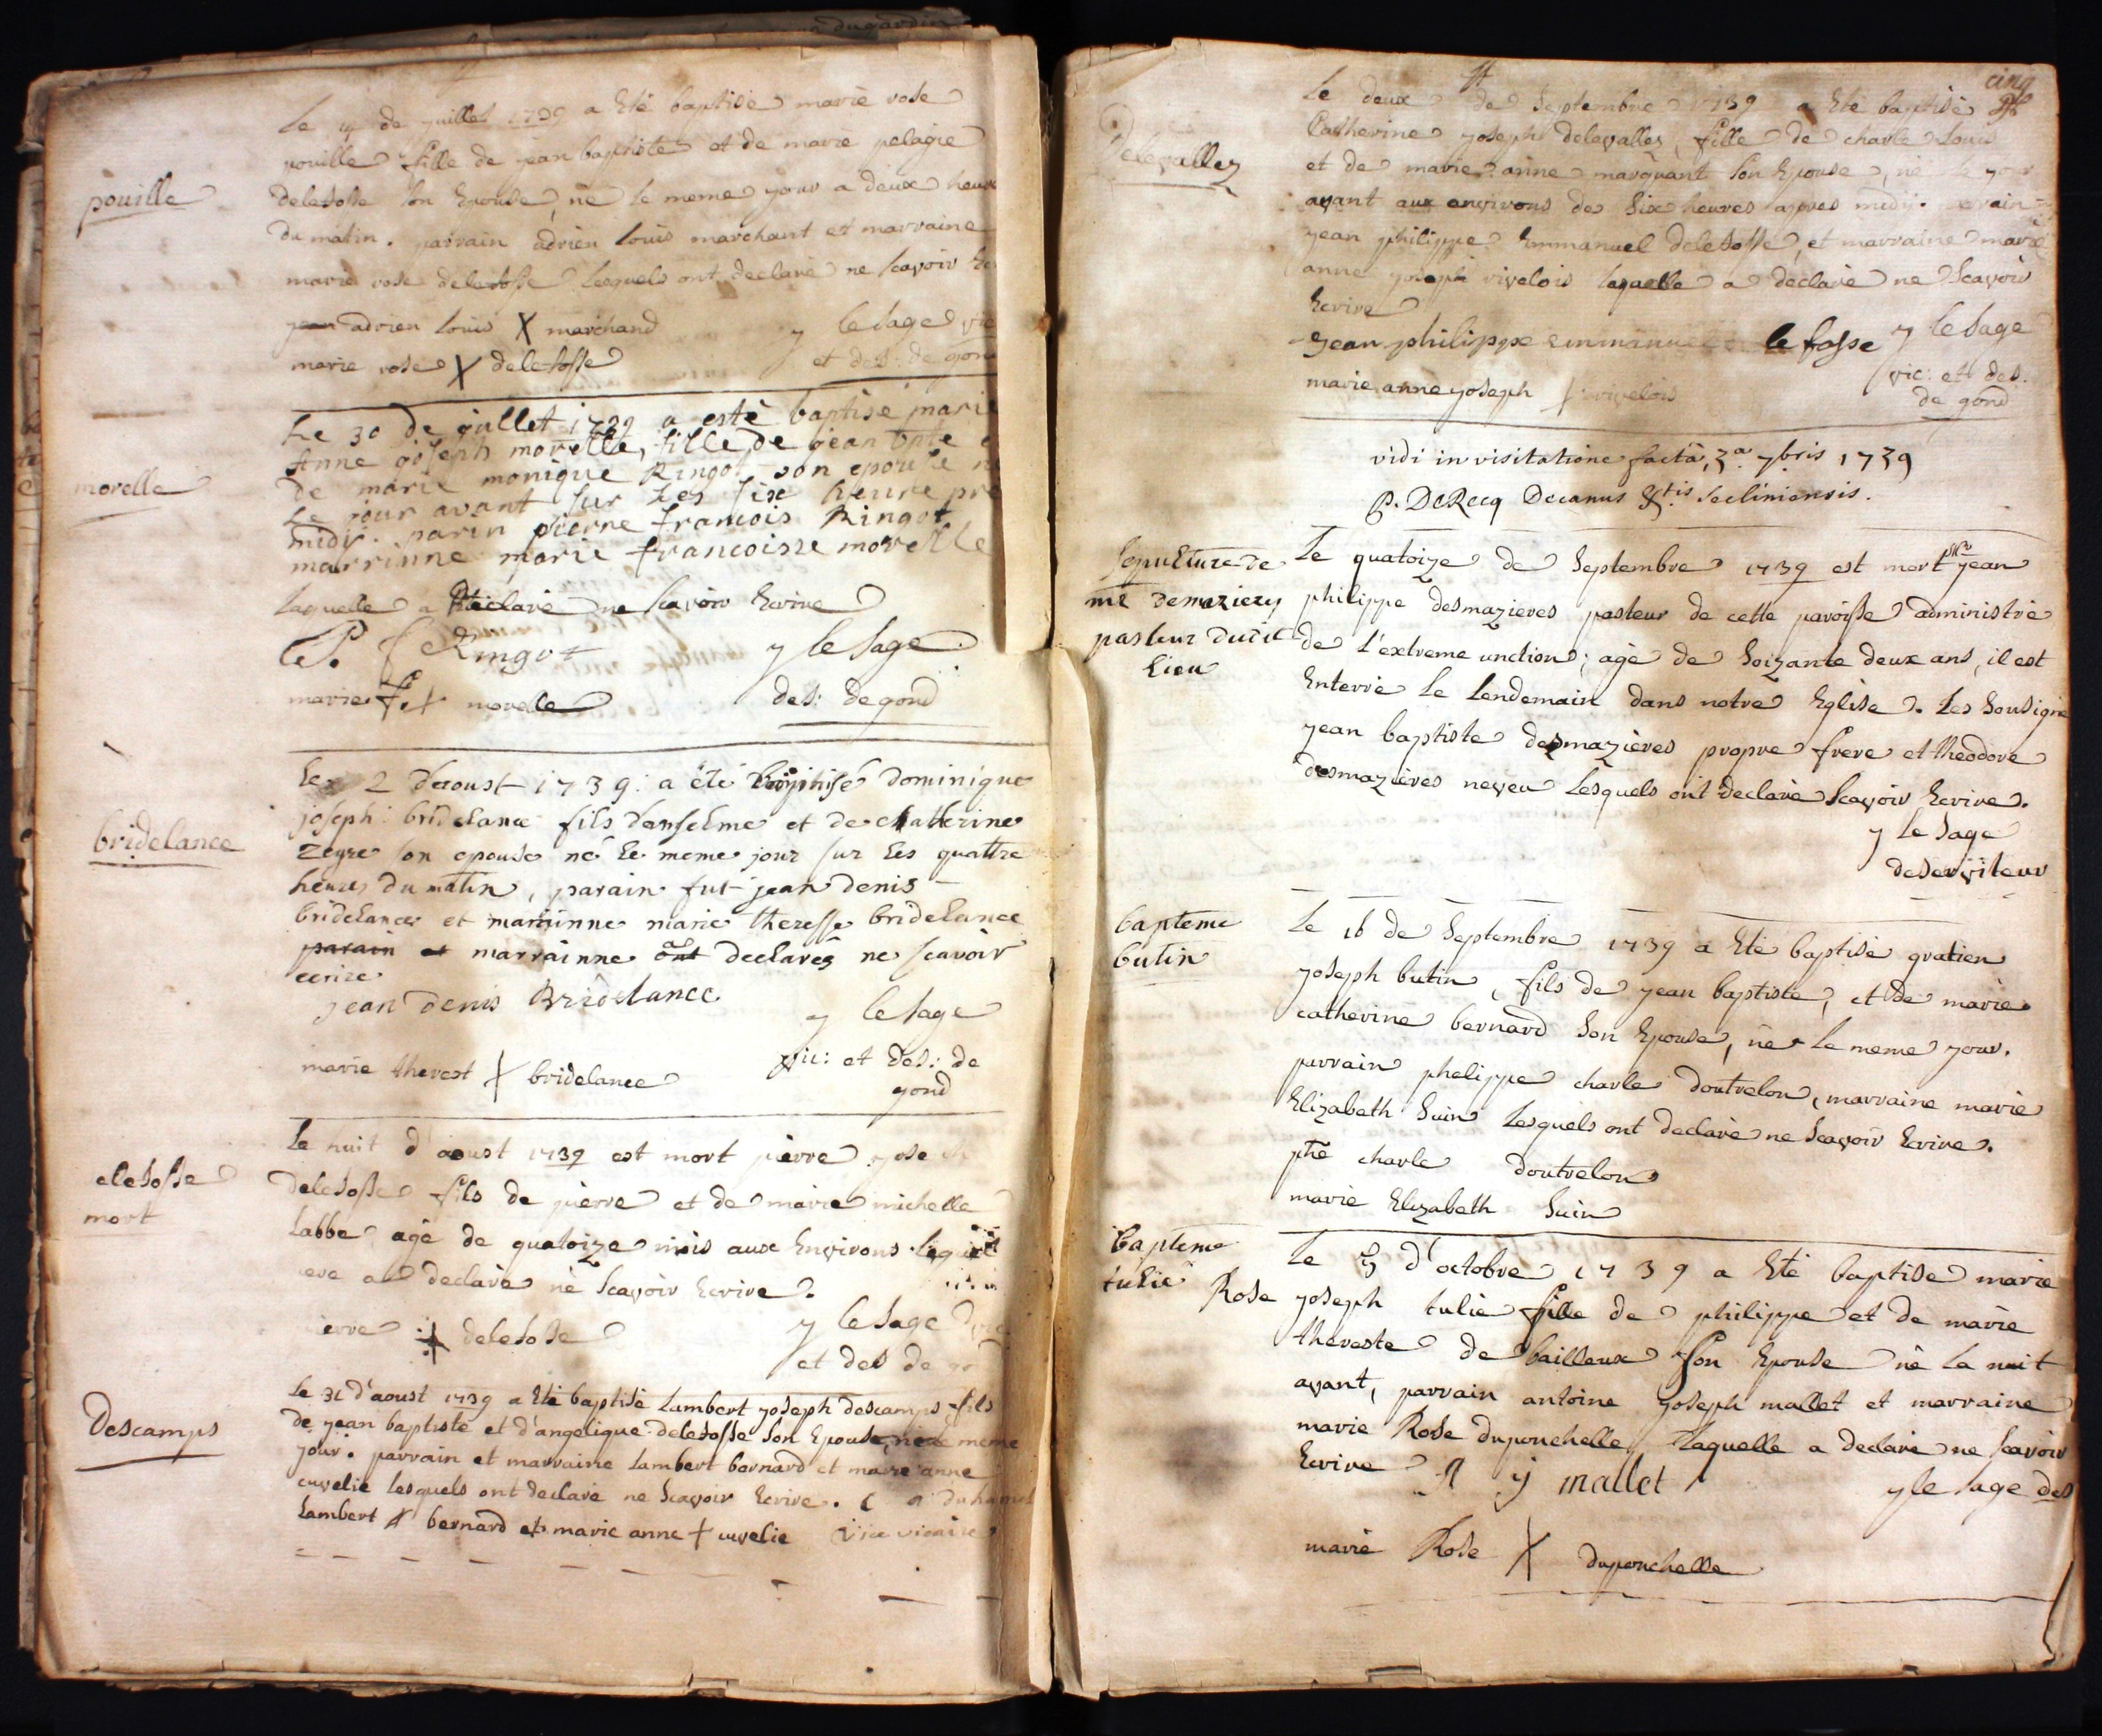 pouille
Le 19 de juillet 1739 a Eté baptisé marie rose
pouille fille de jean baptiste et de marie pelagie
delesosse son Epouse, né le meme jour a deux heure
du matin. parrain adrien louis marchant et marraine
marie rose delesosse lesquels ont declaré ne scavoir
adrien louis X marchand
y le sage vic
marie rose X delesosse
et des: de gon
morelle
Le 30 de juillet 1739 a esté baptise marie
Anne joseph morelle, fille de jean bpte
de marie monique Ringot son epouse
Le jour avant sur les six heure pre
midy. parin pierre francois Ringot
marrinne marie francoisse morelle
laquelle a declaré ne scavoir Ecrire
P. f Ringot
y le sage
marie f. + morelle
des: de gond
bridelance
Le 2 daoust 1739: a été baptisé Dominique
joseph bridelance fils danselme et de catherine
zegre son epouse né le meme jour sur les quattre
heures du matin, parain fut jean denis
bridelance et marrinne marie theresse bridelance
parain et marrainne ont declarés ne scavoir
ecrire
jean denis Bridelance
y le sage
marie therest X bridelance
vic: et des: de
gond
elesosse
mort
Le huit d'aoust 1739 est mort pierre
delesosse fils de pierre et de marie michelle
Labbe agé de quatoize mois aux Environs lequel
a declaré né scavoir Ecrire.
X delesosse
y le sage
et des de
Descamps
Le 31 d'aoust 1739 a Eté baptisé Lambert joseph descamps fils
de jean baptiste et d'angelique delesosse son Epouse, né le meme
jour. parrain et marraine Lambert bernard et marie anne
cuvelie lesquels ont declaré ne scavoir Ecrire. duhamel
Lambert X bernard et marie anne + cuvelie vice vicaire
cinq
delevallez
Le deux de Septembre 1739 a Eté baptisé
Catherine joseph delevallez, fille de charle Louis
et de marie anne marquant son Epouse, né le jour
avant aux environs de Six heures apres midy. parrain
jean philippe Emmanuel delesosse, et marraine marie
anne joseph vivelois laquelle a declaré ne Scavoir
Ecrire
jean philippe emmanuel le sosse
y le sage
marie anne joseph X vivelois
vic: et des.
de gond
vidi in visitatione facta 3a 7bris 1739
P. DeRecq Decanus Xtis. Secliniensis.
Sepulture de
mr Demaziery
pasteur dudit
lieu
Le quatoize de Septembre 1739 est mort Mr jean
philippe desmazieres pasteur de cette paroisse administré
de l'extreme unction; agé de Soizante deux ans, il est
Enterré le lendemain dans notre Eglise. Les Sousigné
jean baptiste desmazières propre frere et theodore
desmazières neveu Lesquels ont declaré Scavoir Ecrire.
y le sage
deserviteur
bapteme
butin
Le 16 de Septembre 1739 a Eté baptisé gratien
joseph butin, fils de jean baptiste, et de marie
catherine bernard Son Epouse, né le meme jour.
parrain phelippe charle doutrelon, marraine marie
Elizabeth Suin Lesquels ont declaré ne Scavoir Ecrire.
phe charle doutrelon
marie Elizabeth Suin
bapteme
tulie
Le 5 d'octobre 1739 a Eté baptisé marie
Rose joseph tulie fille de philippe et de marie
thereste de bailleux son Epouse né la nuit
avant, parrain antoine joseph mallet et marraine
marie Rose duponchelle, laquelle a declaré ne scavoir
Ecrire
A j mallet
y le sage des
marie Rose X duponchelle